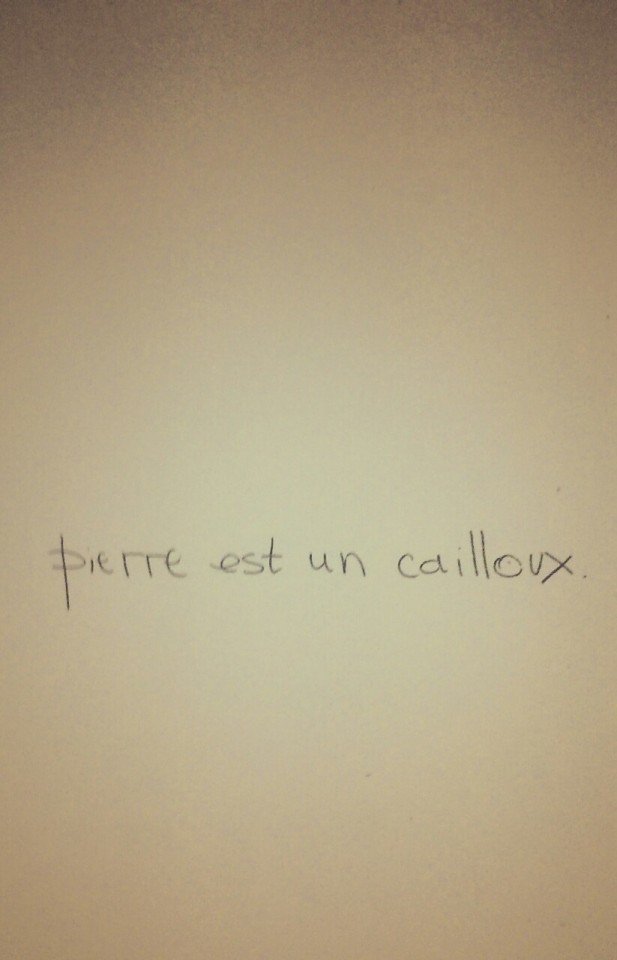 pierre est un cailloux.